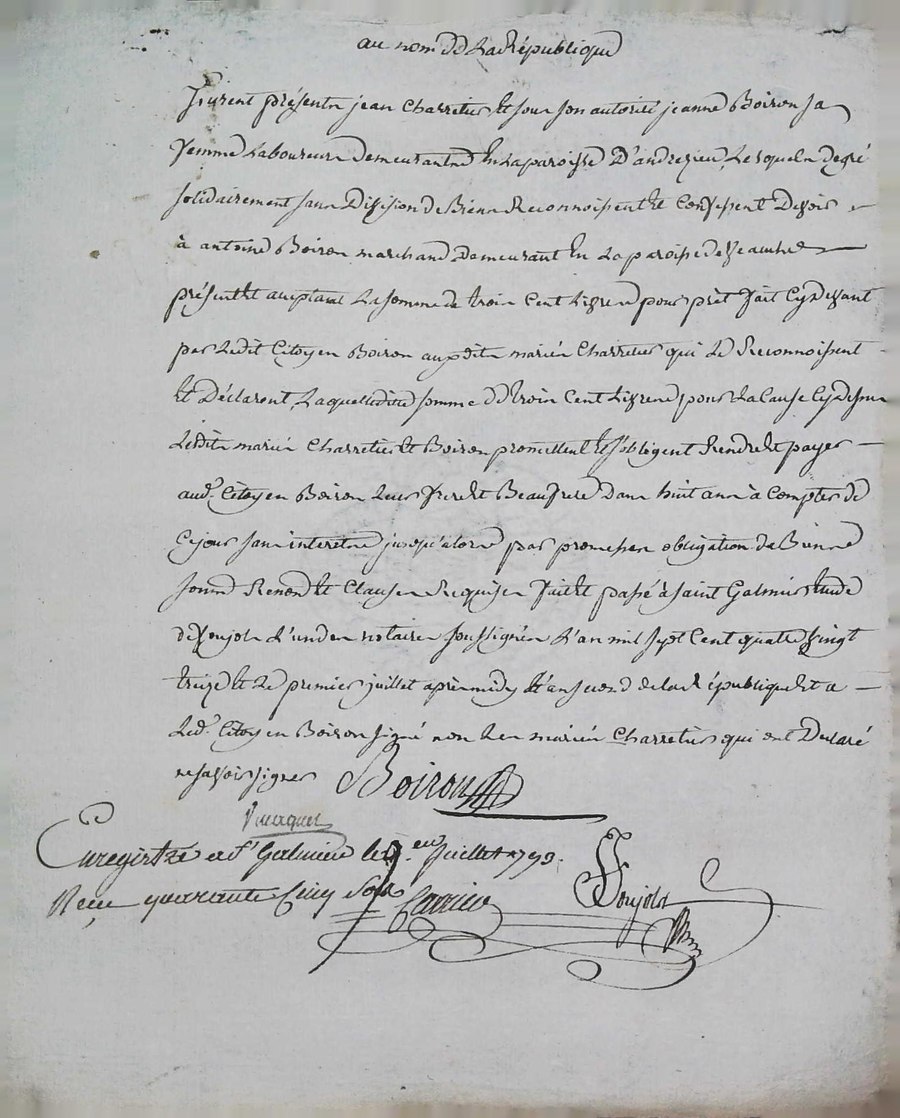 au nom de La République
Furent présents jean Charretier et sous son autorité jeanne Boiron sa
femme Laboureurs demeurants En La paroisse D'andrezieu, Lesquels de gré
solidairement sans Division de Biens Reconnoissent et Confessent Devoir
à antoine Boiron marchand Demeurant En La paroisse de Veauche
présent et acceptant La somme de trois Cent Livres pour prêt fait Cy Devant
par Ledit Citoyen Boiron auxdits mariés Charretier qui Le Reconnoissent
et Déclarent, Laquelle ditte somme de trois Cent Livres pour La Cause Cy dessus
Lesdits mariés Charretier et Boiron promettent et s'obligent Rendre et payer
aud. Citoyen Boiron Leur frere et Beaufrere Dans huit ans à Compter de
Ce jour sans interêts jusqu'alors par promesses obligation de Biens
soumis Renon et Clauses Requises fait et passé à Saint Galmier Etude
de Soujols L'un des notaires soussignés L'an mil sept Cent quatre vingt
treize et Le premier juillet après midy et L'an second de la République et a
Led. Citoyen Boiron signé non Les mariés Charretier qui ont Declaré
ne savoir signer Boiron
Enregistré a St Galmier le juillet 1793.
Soujols
Reçu quarante Cinq Sols